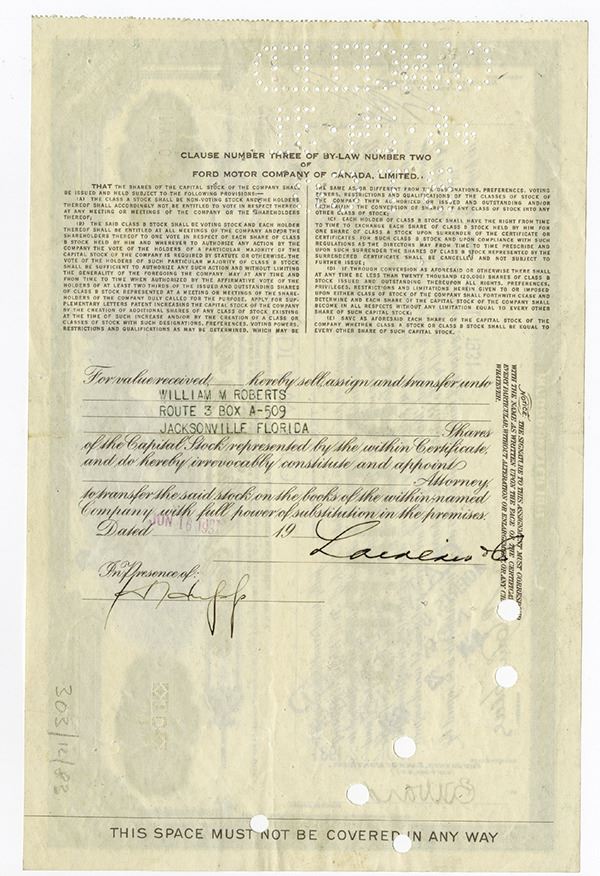 CLAUSE NUMBER THREE OF BY-LAW NUMBER TWO
OF
FORD MOTOR COMPANY OF CANADA, LIMITED.
THAT THE SHARES OF THE CAPITAL STOCK OF THE COMPANY SHALL
BE ISSUED AND HELD SUBJECT TO THE FOLLOWING PROVISIONS:—
(A) THE CLASS A STOCK SHALL BE NON-VOTING STOCK AND THE HOLDERS
THEREOF SHALL ACCORDINGLY NOT BE ENTITLED TO VOTE IN RESPECT THERETO
AT ANY MEETING OR MEETINGS OF THE COMPANY OR THE SHAREHOLDERS
THEREOF;
(B) THE SAID CLASS B STOCK SHALL BE VOTING STOCK AND EACH HOLDER
THEREOF SHALL BE ENTITLED AT ALL MEETINGS OF THE COMPANY AND/OR THE
SHAREHOLDERS THEREOF TO ONE VOTE IN RESPECT OF EACH SHARE OF CLASS
B STOCK HELD BY HIM AND WHENEVER TO AUTHORIZE ANY ACTION BY THE
COMPANY THE VOTE OF THE HOLDERS OF A PARTICULAR MAJORITY OF THE
CAPITAL STOCK OF THE COMPANY IS REQUIRED BY STATUTE OR OTHERWISE, THE
VOTE OF THE HOLDERS OF SUCH PARTICULAR MAJORITY OF CLASS B STOCK
SHALL BE SUFFICIENT TO AUTHORIZE ANY ACTION AND WITHOUT LIMITING
THE GENERALITY OF THE FOREGOING THE COMPANY MAY AT ANY TIME AND
FROM TIME TO TIME WHEN AUTHORIZED BY THE AFFIRMATIVE VOTE OF THE
HOLDERS OF AT LEAST TWO THIRDS OF THE ISSUED AND OUTSTANDING SHARES
OF CLASS B STOCK REPRESENTED AT A MEETING OR MEETINGS OF THE SHARE-
HOLDERS OF THE COMPANY DULY CALLED FOR THE PURPOSE, APPLY FOR SUP-
PLEMENTARY LETTERS PATENT INCREASING THE CAPITAL STOCK OF THE COMPANY
BY THE CREATION OF ADDITIONAL SHARES OF ANY CLASS OF STOCK EXISTING
AT THE TIME OF SUCH INCREASE AND/OR BY THE CREATION OF A CLASS OR
CLASSES OF STOCK WITH SUCH DESIGNATIONS, PREFERENCES, VOTING POWERS,
RESTRICTIONS AND QUALIFICATIONS AS MAY BE DETERMINED, WHICH MAY BE
THE SAME AS OR DIFFERENT FROM THE DESIGNATIONS, PREFERENCES, VOTING
POWERS, RESTRICTIONS AND QUALIFICATIONS OF THE CLASSES OF STOCK OF
THE COMPANY THEN AUTHORIZED OR ISSUED AND OUTSTANDING AND/OR
THE CONVERSION OF SHARES OF ANY CLASS OF STOCK INTO ANY
OTHER CLASS OF STOCK;
(C) EACH HOLDER OF CLASS B STOCK SHALL HAVE THE RIGHT FROM TIME
TO TIME TO EXCHANGE EACH SHARE OF CLASS B STOCK HELD BY HIM FOR
ONE SHARE OF CLASS A STOCK UPON SURRENDER OF THE CERTIFICATE OR
CERTIFICATES FOR SUCH CLASS B STOCK AND UPON COMPLIANCE WITH SUCH
REGULATIONS AS THE DIRECTORS MAY FROM TIME TO TIME PRESCRIBE AND
UPON SUCH SURRENDER THE SHARES OF CLASS B STOCK REPRESENTED BY THE
SURRENDERED CERTIFICATE SHALL BE CANCELLED AND NOT SUBJECT TO
FURTHER ISSUE;
(D) IF THROUGH CONVERSION AS AFORESAID OR OTHERWISE THERE SHALL
AT ANY TIME BE LESS THAN TWENTY THOUSAND (20,000) SHARES OF CLASS B
STOCK ISSUED AND OUTSTANDING THEREUPON ALL RIGHTS, PREFERENCES,
PRIVILEGES, RESTRICTIONS AND LIMITATIONS HEREIN GIVEN TO OR IMPOSED
UPON EITHER CLASS OF STOCK OF THE COMPANY SHALL FORTHWITH CEASE AND
DETERMINE AND EACH SHARE OF THE CAPITAL STOCK OF THE COMPANY SHALL
BECOME IN ALL RESPECTS WITHOUT LIMITATION EQUAL TO EVERY OTHER
SHARE OF SUCH CAPITAL STOCK;
(E) SAVE AS AFORESAID EACH SHARE OF THE CAPITAL STOCK OF THE
COMPANY WHETHER CLASS A STOCK OR CLASS B STOCK SHALL BE EQUAL TO
EVERY OTHER SHARE OF SUCH CAPITAL STOCK.
For value received, hereby sell, assign and transfer unto
WILLIAM M ROBERTS
ROUTE 3 BOX A-509
JACKSONVILLE FLORIDA
Shares
of the Capital Stock represented by the within Certificate,
and do hereby irrevocably constitute and appoint
Attorney
to transfer the said stock on the books of the within-named
Company with full power of substitution in the premises.
Dated JUN 16 19
In Presence of:
NOTICE: THE SIGNATURE TO THIS ASSIGNMENT MUST CORRESPOND
WITH THE NAME AS WRITTEN UPON THE FACE OF THE CERTIFICATE
EVERY PARTICULAR, WITHOUT ALTERATION OR ENLARGEMENT OR ANY
WHATEVER.
303/12/85
Edward
THIS SPACE MUST NOT BE COVERED IN ANY WAY